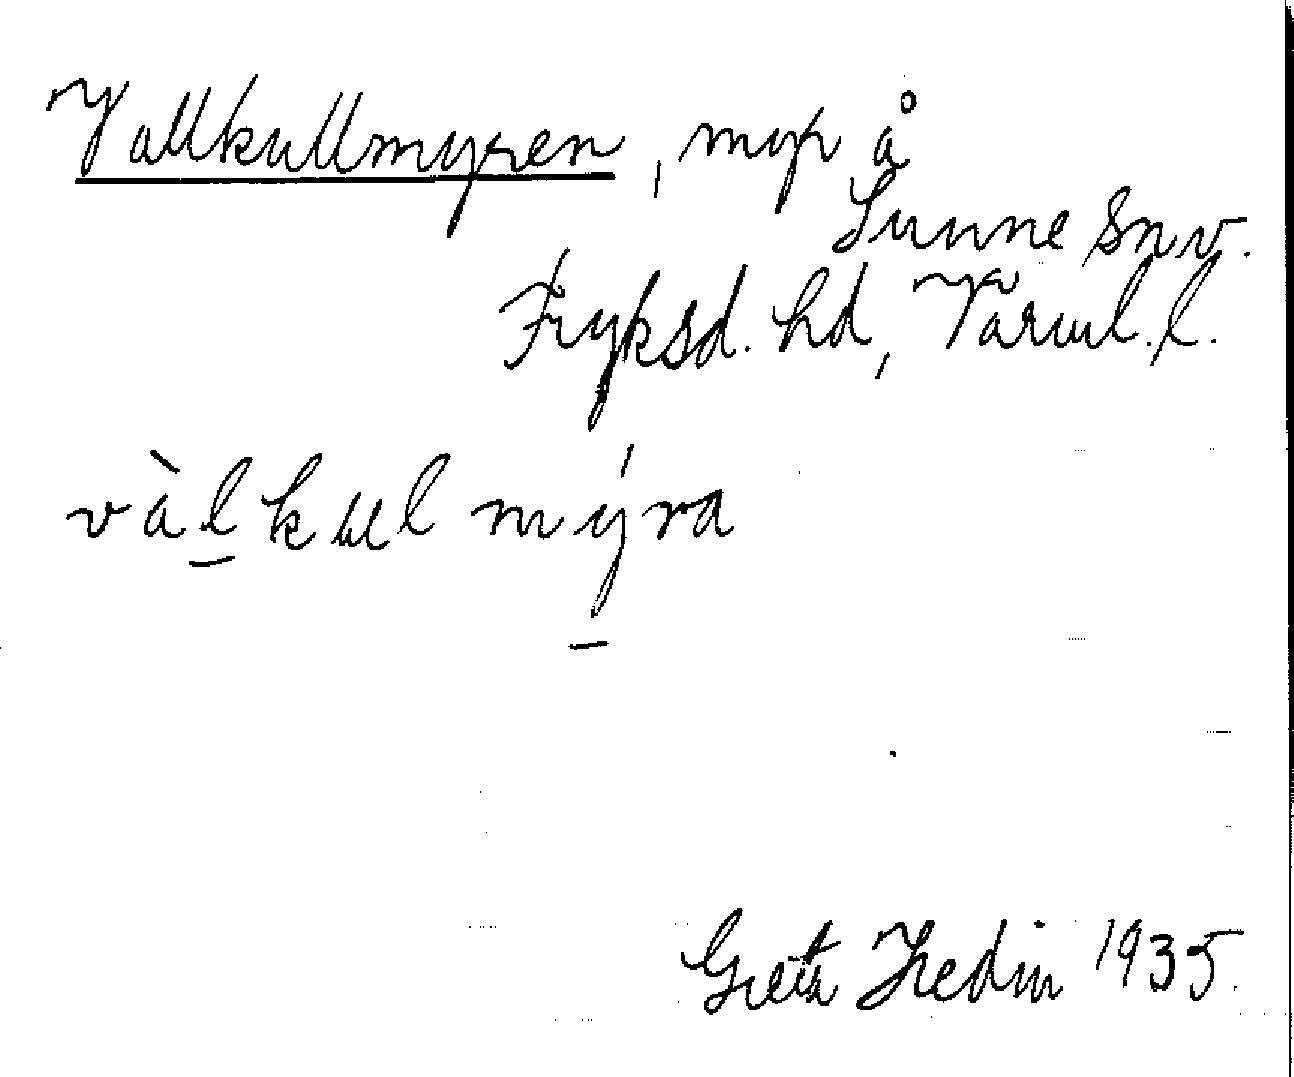 Vallkullmyren, myr å
Sunne snv.
Fryksd. hd, Värml. l.
vàl̲kʉl mý̲ra
Greta Hedin 1935.